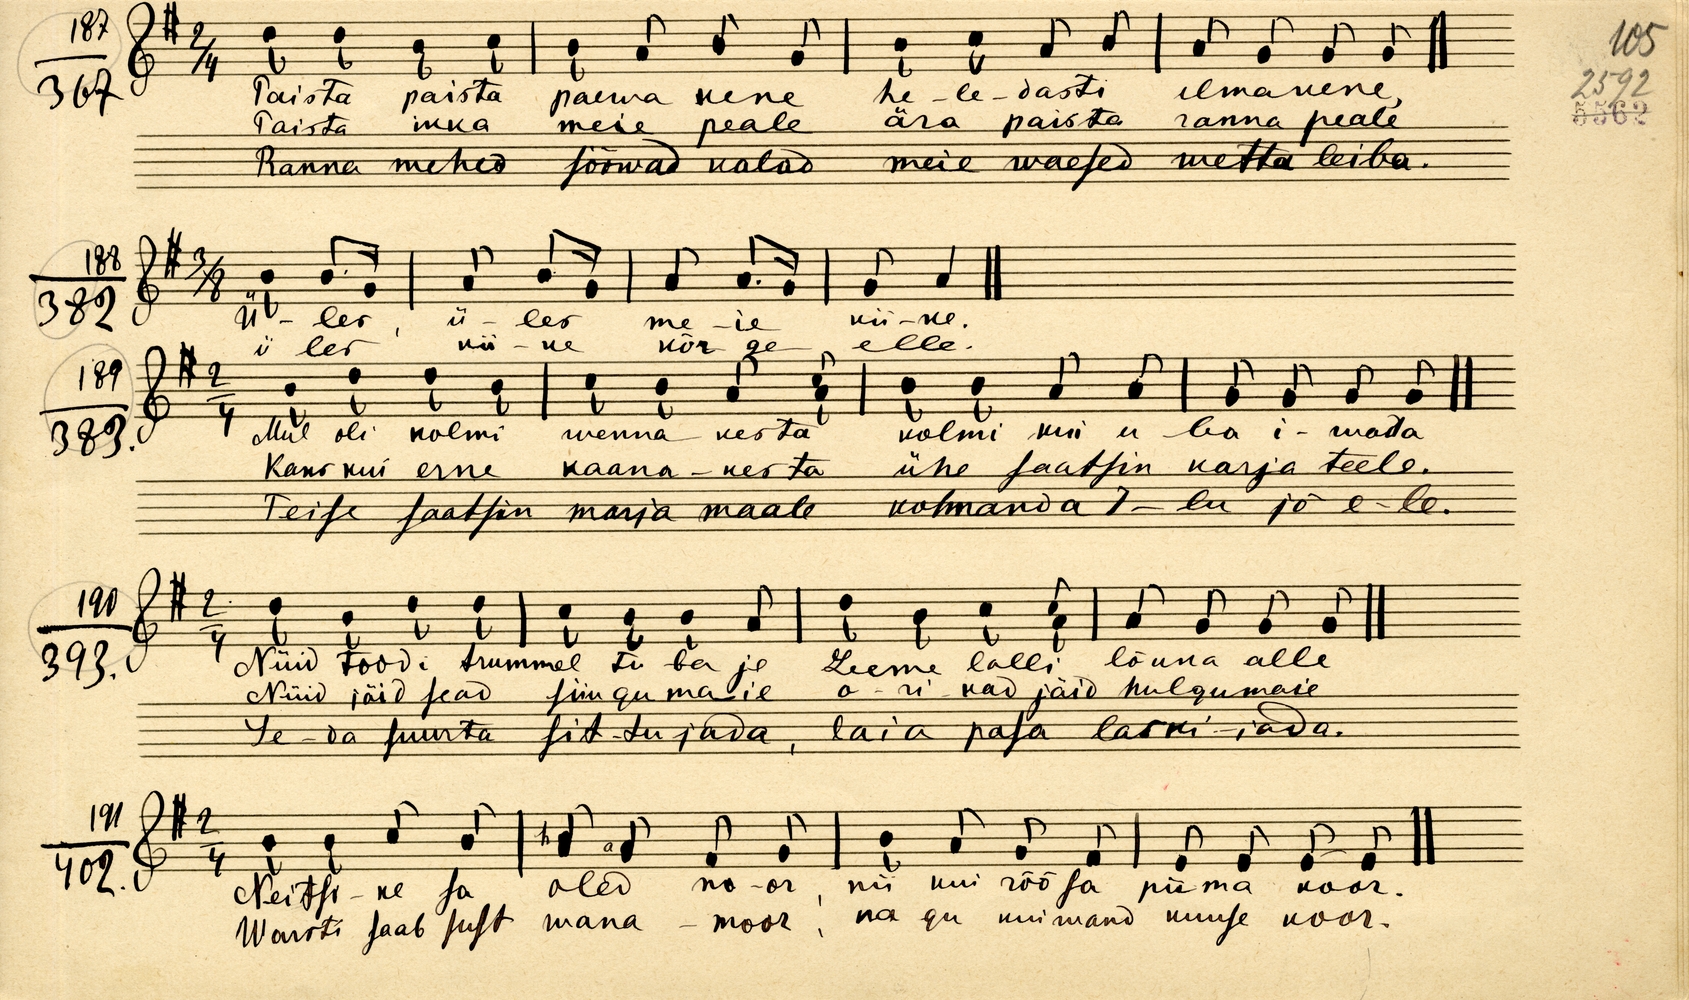 187
367
105
2592
5562
2/4
Paista paista paewa kene he-le-dasti ilmakene,
Paista ikka meie peale ära paista ranna peale
Ranna mehed söövad kalad meie waesed metta leiba.
188
382
3/8
Ü-les, ü-les me-ie kii-ke.
ü les kii-ke kõr ge elle.
189
383.
2/4
Mul oli kolmi wenna kesta kolmi kui u ba i-wada
Kaks kui erne kaana-kesta ühe saatsin karja teele.
Teise saatsin marja maale kolmanda I-lu jõ e-le.
190
393.
2/4
Nüid toodi trummel tu ba je Leeme lalli lõuna alle
Nüid jäid sead siingu ma ie o-ri-kad jäid hulgumaie
Se-da suurta sit-tujada, laia pasa laski-jada.
191
402.
2/4
Neitsi-ke sa oled no-or, nii kui röösa piima koor.
Warsti saab sust wana-moor, na gu kuiwand kuuse koor.